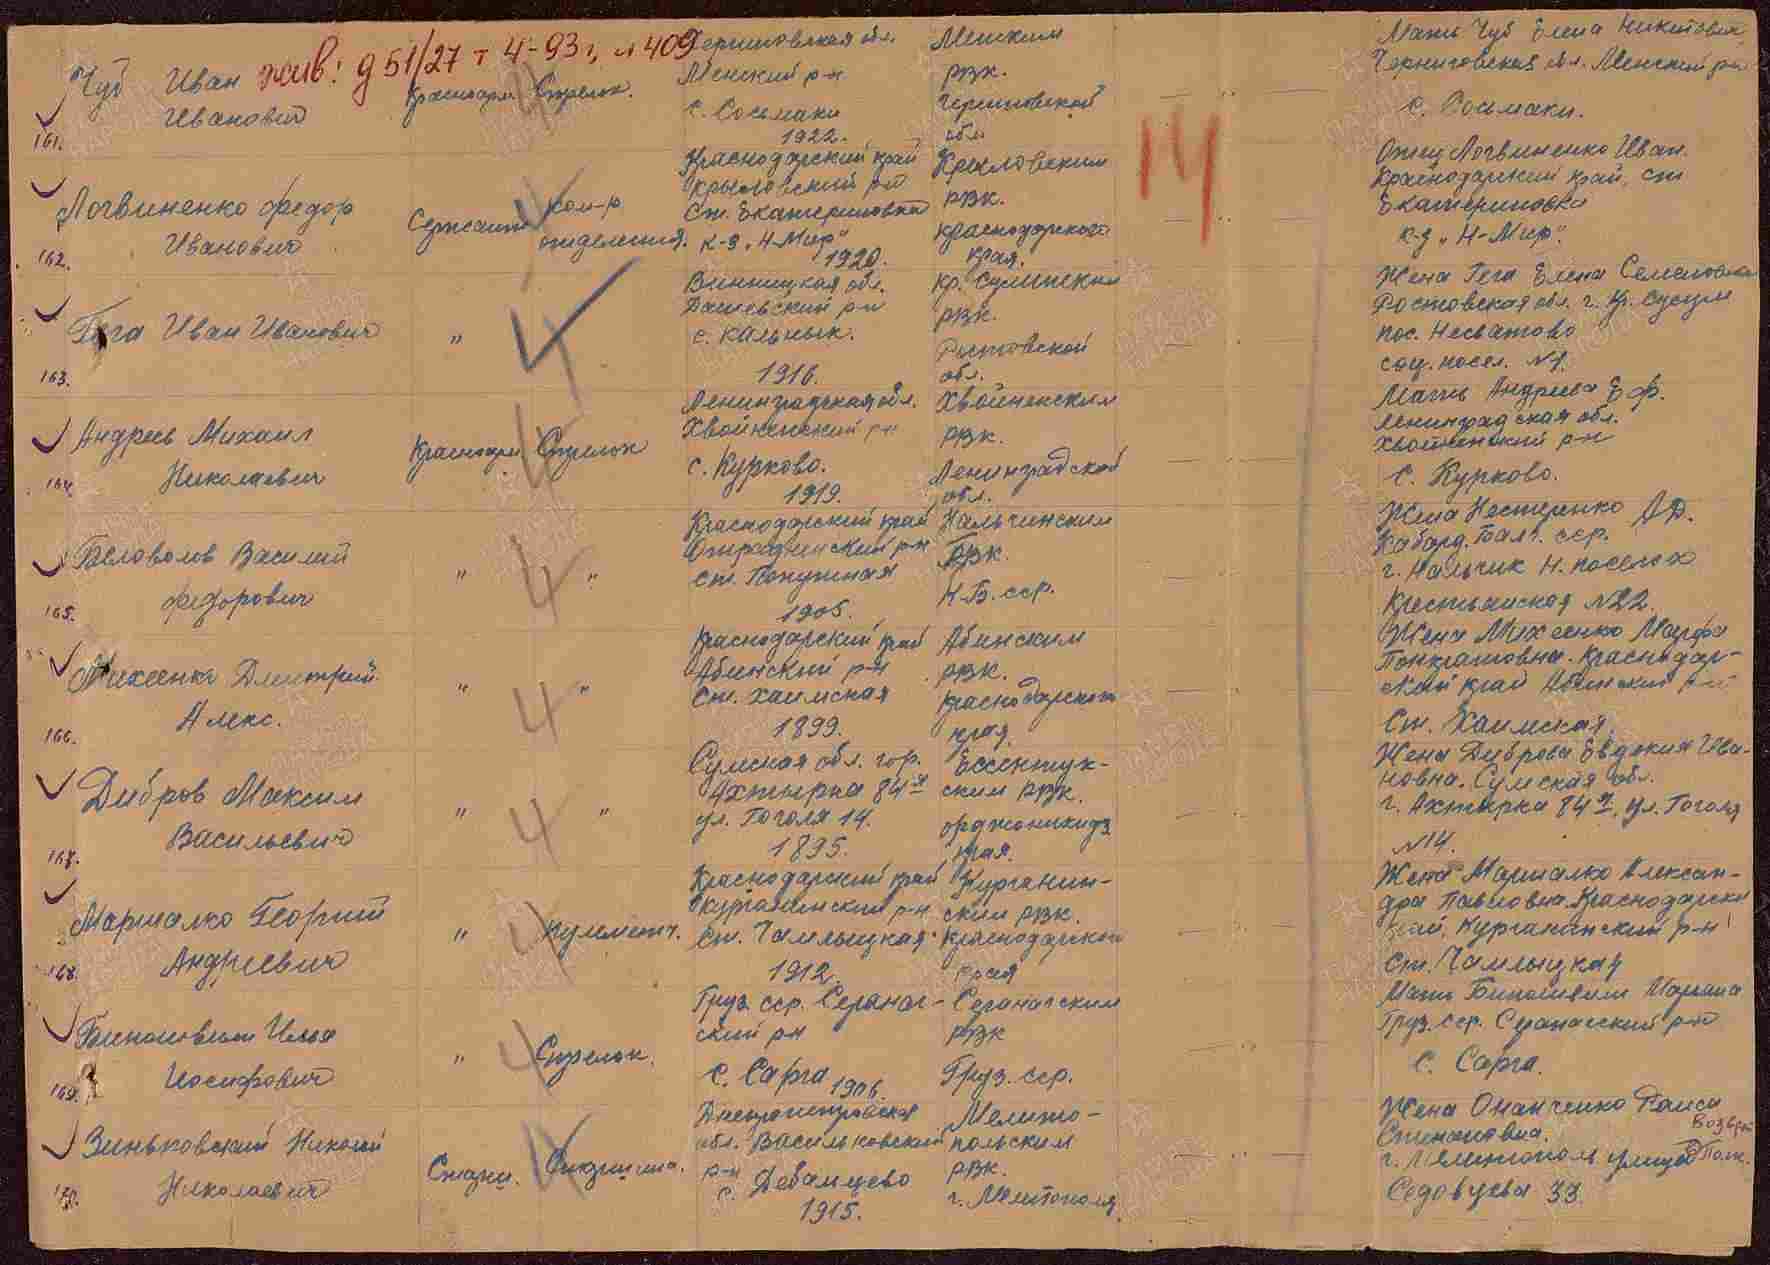 жив: д 51/27 т 4-93 г, л 409
161.
Чуб Иван
Иванович
Красноарм. Стрелок.
Черниговская обл.
Менский р-н
с. Осьмаки
1922.
Менским
РВК.
Черниговской
обл.
14
Мать Чуб Елена Никитовна
Черниговская обл. Менский р-н
с. Осьмаки.
162.
Логвиненко Федор
Иванович
Сержант
Ком-р
отделения.
Краснодарский край
Крыловский р-н
Ст. Екатериновка
к-з „Н-Мир“
1920.
Крыловским
РВК.
Краснодарского
края.
Отец Логвиненко Иван.
Краснодарский край, ст
Екатериновка
к-з „Н-Мир“.
163.
Гега Иван Иванович
"
4
Винницкая обл.
Дашевский р-н
с. Кальнык.
1916.
Кр. Сулинским
РВК.
Ростовской
обл.
Жена Гега Елена Семеновна
Ростовская обл. г. Кр. Сулин
пос. Несветаево
соц. посел. №1.
164.
Андреев Михаил
Николаевич
Красноарм. Стрелок
4
Ленинградская обл.
Хвойненский р-н
с. Курково.
1919.
Хвойненским
РВК.
Ленинградской
обл.
Мать Андреева Е Ф.
Ленинградская обл.
Хвойненский р-н
с. Курково.
165.
Беловолов Василий
Федорович
" 4 "
Краснодарский край
Отрадненский р-н
ст. Попутная
1905.
Нальчинским
РВК.
К-Б. сср.
Жена Нестеренко А Д.
Кабард. Балк. сср.
г. Нальчик Н. поселок
Крестьянская №22.
166.
Михеенко Дмитрий
Алекс.
" 4 "
Краснодарский край
Абинский р-н
Ст. Хаимская
1899.
Абинским
РВК.
Краснодарского
края.
Жена Михеенко Марфа
Панкратовна. Краснодар-
ский край Абинский р-н
Ст. Хаимская
167.
Дибров Максим
Васильевич
" 4 "
Сумская обл. гор.
Ахтырка 84 я
ул. Гоголя 14.
1895.
Ессентук-
ским РВК.
орджоникидз.
края.
Жена Диброва Евдокия Ива-
новна. Сумская обл.
г. Ахтырка 84 я, ул. Гоголя
№14.
168.
Маршалко Георгий
Андреевич
" 4 Пулеметч.
Краснодарский край
Курганинский р-н
Ст. Чамлыцкая
1912.
Курганин-
ским РВК.
Краснодарского
края
Жена Маршалко Алексан-
дра Павловна Краснодарский
край, Курганинский р-н
Ст. Чамлыцкая
169.
Илья
Иосифович
" 4 Стрелок.
Груз. сср.
ский р-н
с. Сарга 1906.
РВК
Груз. сср.
Мать
Груз. сср. р-н
с. Сарга.
170.
Зиньковский Николай
Николаевич
4
Днепропетровская
обл. Васильковский
р-н
с. Дебальцево
1915.
Мелито-
польским
РВК.
г. Мелитополя
Жена Онанченко Раиса
Степановна.
г. Мелитополь улица
Седовцева 33.